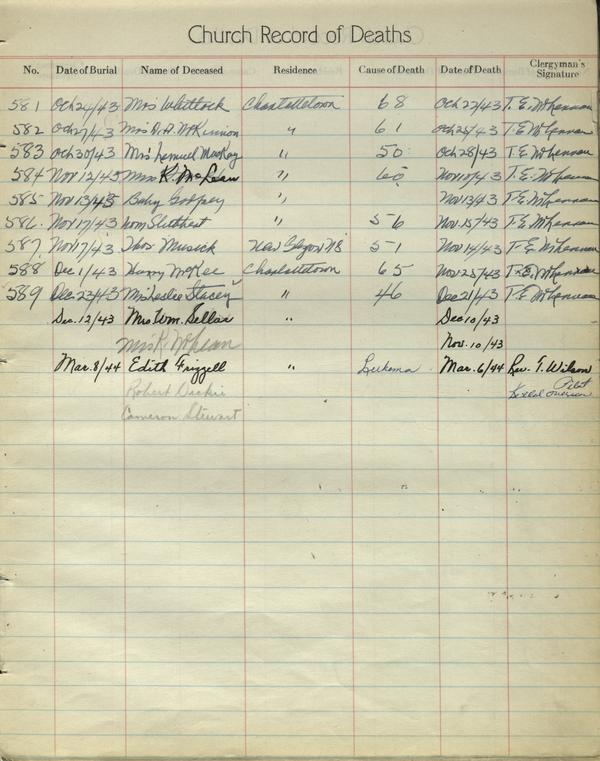 Church Record of Deaths
No. Date of Burial Name of Deceased Residence Cause of Death Date of Death Clergyman's Signature
581 Oct 24/43 Mrs Whitlock Charlottetown 68 Oct 22/43 T. E. McLennan
582 Oct 27/43 Mrs D. A. McKinnon " 61 Oct 25/43 T. E. McLennan
583 Oct 30/43 Mrs Lemuel MacKay " 50 Oct 28/43 T. E. McLennan
584 Nov 12/43 Mrs K. McLean " 60 Nov 10/43 T. E. McLennan
585 Nov 13/43 Baby Godfrey " Nov 13/43 T. E. McLennan
586. Nov 17/43 " 56 Nov. 15/43 T. E. McLennan
587 Nov 17/43 Thos Musick New Glasgow NS 51 Nov 14/43 T. E. McLennan
588 Dec 1/43 Henry McKee Charlottetown 65 Nov 25/43 T. E. McLennan
589 Dec. 23/43 Mrs Leslie Stacey " 46 Dec 21/43 T. E. McLennan
Dec. 12/43 Mrs Wm. Sellar " Dec 10/43
Mrs K. McLean Nov. 10/43
Mar. 8/44 Edith Frizzell " Leukema Mar. 6/44 Rev. T. Wilson
Robert Dickie
Cameron Stewart